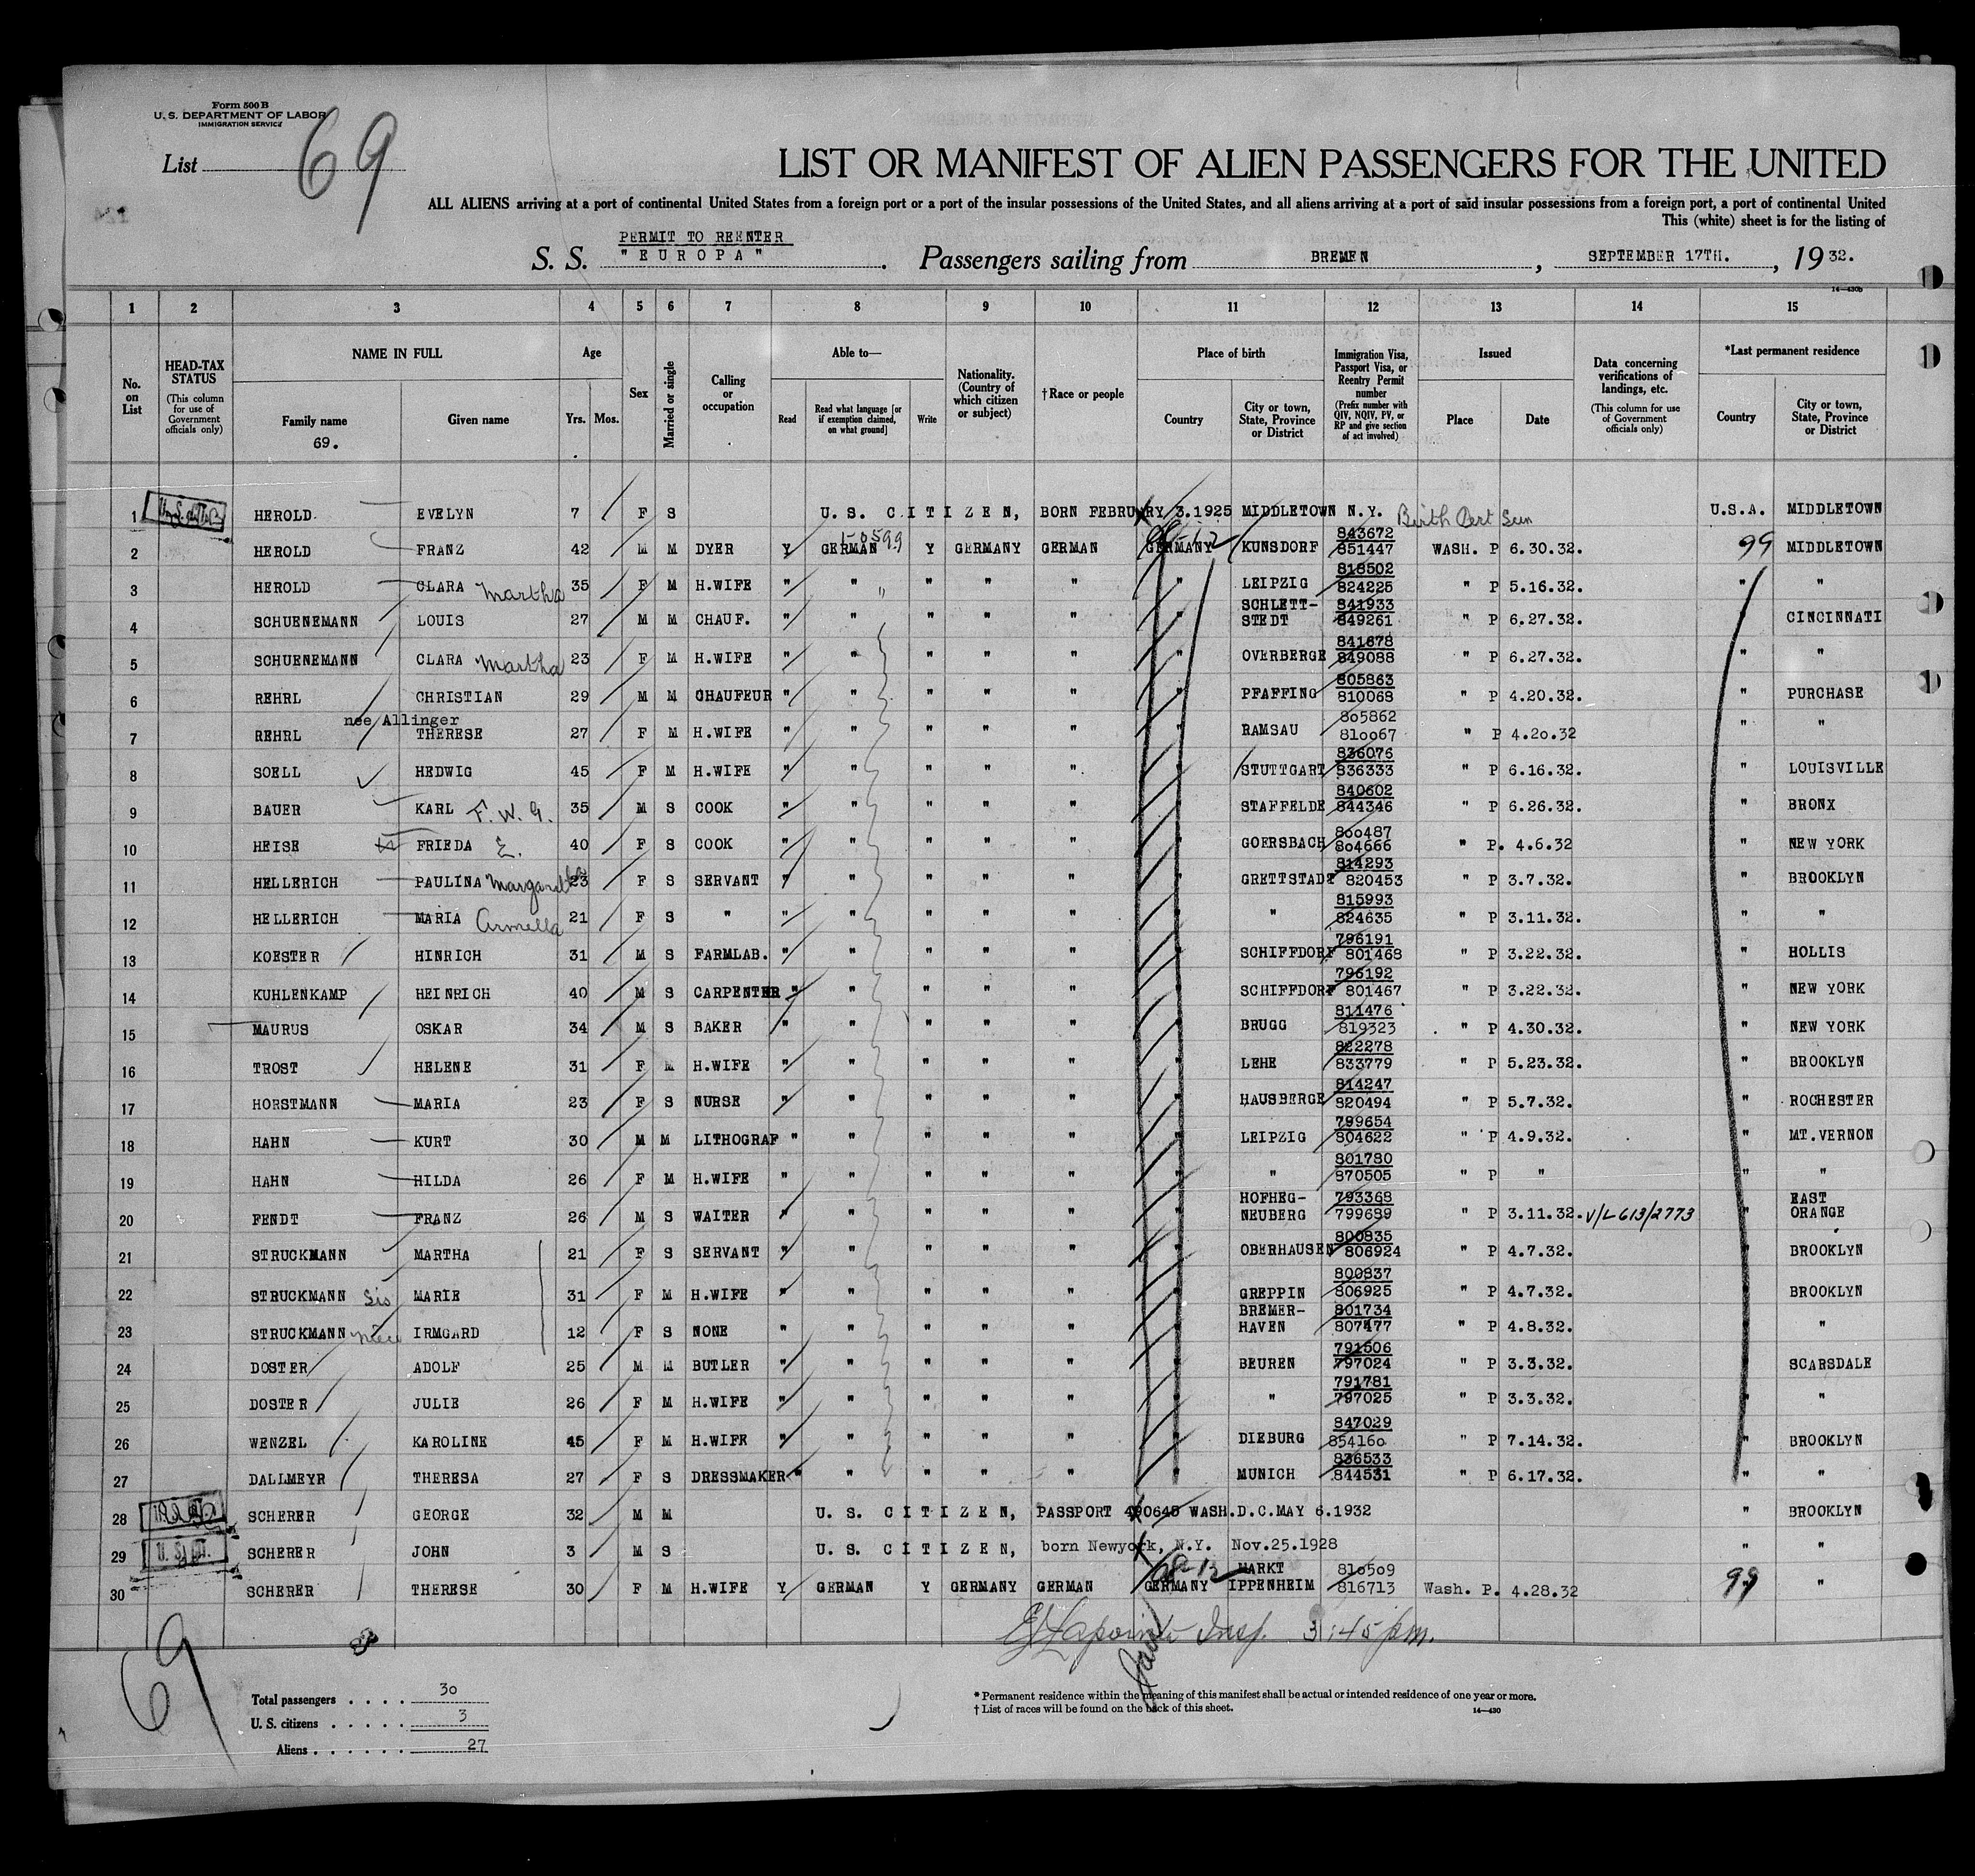 Form 500 B
U. S. DEPARTMENT OF LABOR
IMMIGRATION SERVICE
List 69
LIST OR MANIFEST OF ALIEN PASSENGERS FOR THE UNITED
ALL ALIENS arriving at a port of continental United States from a foreign port or a port of the insular possessions of the United States, and all aliens arriving at a port of said insular possessions from a foreign port, a port of continental United
This (white) sheet is for the listing of
PERMIT TO REENTER
S. S. "EUROPA". Passengers sailing from BREMEN, SEPTEMBER 17TH., 1932.
14—430b
1 2 3 4 5 6 7 8 9 10 11 12 13 14 15
No. on List
HEAD-TAX STATUS (This column for use of Government officials only)
NAME IN FULL Family name 69. Given name
Age Yrs. Mos.
Sex
Married or single
Calling or occupation
Able to— Read Read what language [or if exemption claimed, on what ground] Write
Nationality. (Country of which citizen or subject)
† Race or people
Place of birth Country City or town, State, Province or District
Immigration Visa, Passport Visa, or Reentry Permit number (Prefix number with QIV, NQIV, PV, or RP and give section of act involved)
Issued Place Date
Data concerning verifications of landings, etc. (This column for use of Government officials only)
*Last permanent residence Country City or town, State, Province or District
1 HEROLD EVELYN 7 F S U. S. CITIZEN, BORN FEBRUARY 3.1925 MIDDLETOWN N.Y. Birth Cert Seen U.S.A. MIDDLETOWN
2 HEROLD FRANZ 42 M M DYER Y GERMAN Y GERMANY GERMAN GERMANY KUNSDORF 843672 851447 WASH. P 6.30.32. 99 MIDDLETOWN
3 HEROLD CLARA Martha 35 F M H.WIFE " " " " " " LEIPZIG 818502 824225 " P 5.16.32. " "
4 SCHUENEMANN LOUIS 27 M M CHAUF. " " " " " " SCHLETT-STEDT 841933 849261 " P 6.27.32. " CINCINNATI
5 SCHUENEMANN CLARA Martha 23 F M H.WIFE " " " " " " OVERBERGE 841678 849088 " P 6.27.32. " "
6 REHRL CHRISTIAN 29 M M CHAUFEUR " " " " " " PFAFFING 805863 810068 " P 4.20.32. " PURCHASE
7 REHRL nee Allinger THERESE 27 F M H.WIFE " " " " " " RAMSAU 805862 810067 " P 4.20.32 " "
8 SOELL HEDWIG 45 F M H.WIFE " " " " " " STUTTGART 836076 836333 " P 6.16.32. " LOUISVILLE
9 BAUER KARL F. W. G. 35 M S COOK " " " " " " STAFFELDE 840602 844346 " P 6.26.32. " BRONX
10 HEISE FRIEDA E. 40 F S COOK " " " " " " GOERSBACH 800487 804666 " P. 4.6.32 " NEW YORK
11 HELLERICH PAULINA 23 F S SERVANT " " " " " " GRETTSTADT 814293 820453 " P 3.7.32. " BROOKLYN
12 HELLERICH MARIA Armella 21 F S " " " " " " " " 815993 824635 " P 3.11.32. " "
13 KOESTER HINRICH 31 M S FARMLAB. " " " " " " SCHIFFDORF 796191 801468 " P 3.22.32. " HOLLIS
14 KUHLENKAMP HEINRICH 40 M S CARPENTER " " " " " " SCHIFFDORF 796192 801467 " P 3.22.32. " NEW YORK
15 MAURUS OSKAR 34 M S BAKER " " " " " " BRUGG 811476 819323 " P 4.30.32. " NEW YORK
16 TROST HELENE 31 F M H.WIFE " " " " " " LEHE 822278 833779 " P 5.23.32. " BROOKLYN
17 HORSTMANN MARIA 23 F S NURSE " " " " " " HAUSBERGE 814247 820494 " P 5.7.32. " ROCHESTER
18 HAHN KURT 30 M M LITHOGRAF " " " " " " LEIPZIG 799654 804622 " P 4.9.32. " MT.VERNON
19 HAHN HILDA 26 F M H.WIFE " " " " " " " 801780 870505 " P " " "
20 FENDT FRANZ 26 M S WAITER " " " " " " HOFHEG-NEUBERG 793368 799689 " P 3.11.32. V/L 613/2773 " EAST ORANGE
21 STRUCKMANN MARTHA 21 F S SERVANT " " " " " " OBERHAUSEN 800835 806924 " P 4.7.32. " BROOKLYN
22 STRUCKMANN Sis MARIE 31 F M H.WIFE " " " " " " GREPPIN 800837 806925 " P 4.7.32. " BROOKLYN
23 STRUCKMANN niece IRMGARD 12 F S NONE " " " " " " BREMER-HAVEN 801734 807477 " P 4.8.32. " "
24 DOSTER ADOLF 25 M M BUTLER " " " " " " BEUREN 791506 797024 " P 3.3.32. " SCARSDALE
25 DOSTER JULIE 26 F M H.WIFE " " " " " " " 791781 797025 " P 3.3.32. " "
26 WENZEL KAROLINE 45 F M H.WIFE " " " " " " DIEBURG 847029 854160 " P 7.14.32. " BROOKLYN
27 DALLMEYR THERESA 27 F S DRESSMAKER " " " " " " MUNICH 836533 844531 " P 6.17.32. " "
28 SCHERER GEORGE 32 M M U. S. CITIZEN, PASSPORT 490645 WASH.D.C.MAY 6.1932 " BROOKLYN
29 SCHERER JOHN 3 M S U. S. CITIZEN, born Newyork, N.Y. Nov.25.1928 " "
30 SCHERER THERESE 30 F M H.WIFE Y GERMAN Y GERMANY GERMAN GERMANY MARKT IPPENHEIM 810509 816713 Wash. P. 4.28.32 99 "
Lapointe Insp. 3:45 pm.
69
Total passengers . . . . 30
U. S. citizens . . . . . 3
Aliens . . . . . . 27
* Permanent residence within the meaning of this manifest shall be actual or intended residence of one year or more.
† List of races will be found on the back of this sheet.
14—430